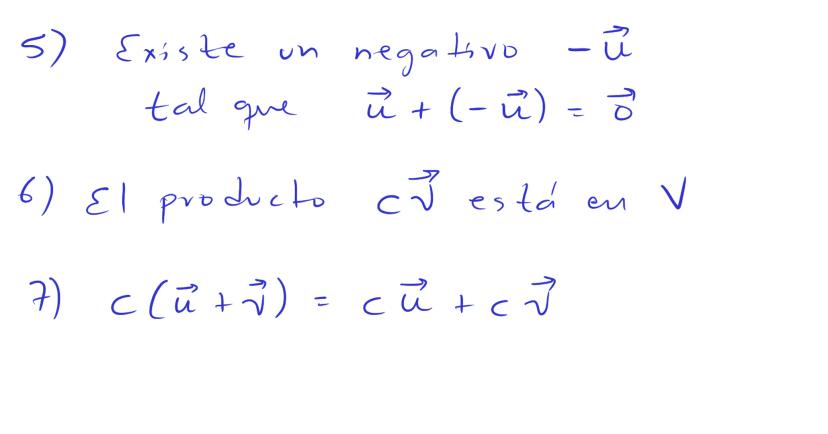 5) Existe un negativo −u⃗
tal que u⃗ + (−u⃗) = 0⃗
6) El producto cv⃗ está en V
7) c(u⃗ + v⃗) = cu⃗ + cv⃗